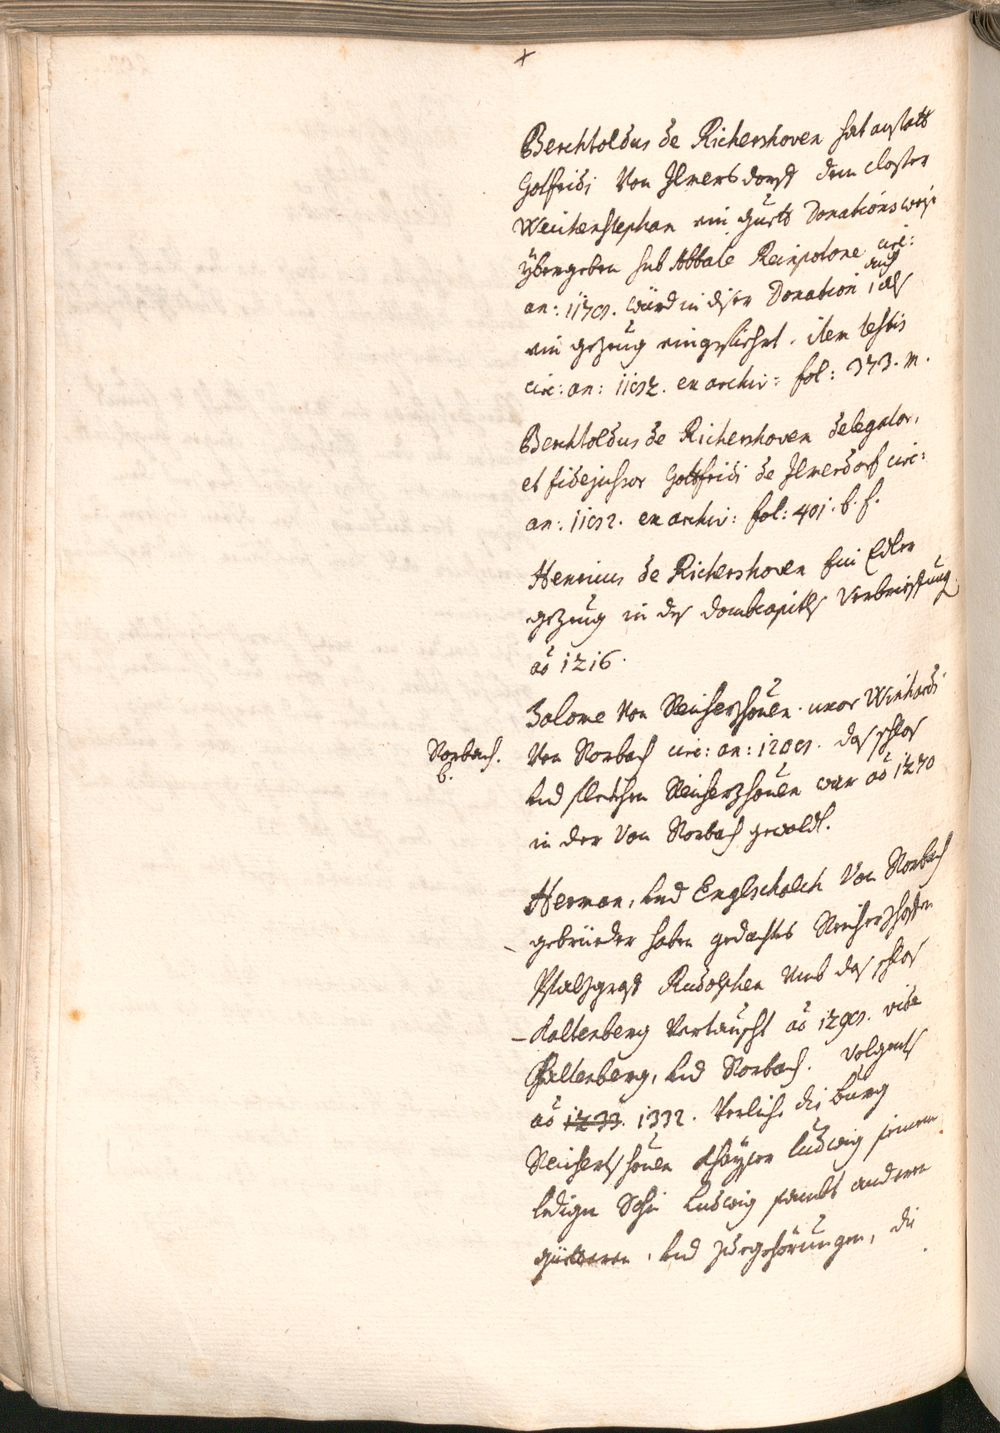 +
Berchtoldus de Richershoven hat anstatt
Gotfridi Von Ilmersdorff dem closter
Weichenstephan ein Guett Donationsweis
übergeben sub Abbate Reinpotone circ:
an: 1170. würd in diser Donation auch als
ein gezeug eingefiehrt. item testis
circ: an: 1192. ex archiv: fol: 373. m.
Berchtoldus de Richershoven delegator,
et fidejussor Gottfridi de Ilmerdorf circ:
an: 1192. ex archiv: fol: 401. b. f.
Henricus de Richershoven Ein Edler
gezeug in des Dombcapitls Verbrieffung
aō 1216.
Salome Von Reicherzhouen. uxor Winhardi
Rorbach. Von Rorbach circ: an: 1209. das schlos
b. Und flekhen Reicherzhouen war aō 1270
in der Von Rorbach gewaldt.
Herman, Und Englschalch Von Rorbach
gebrüeder haben gedachtes Reicherzhofen
Pfalzgraf Rudolphen Umb das schlos
Kaltenberg Vertauscht aō 1290. vide
Kaltenberg, Und Rorbach. Volgents
aō 1233. 1332. Verlihe die Burg
Reichertshouen Khayser Ludwig seinem
ledigen Sohn Ludwig sambt anderen
Güetteren, Und zuegehörungen, die